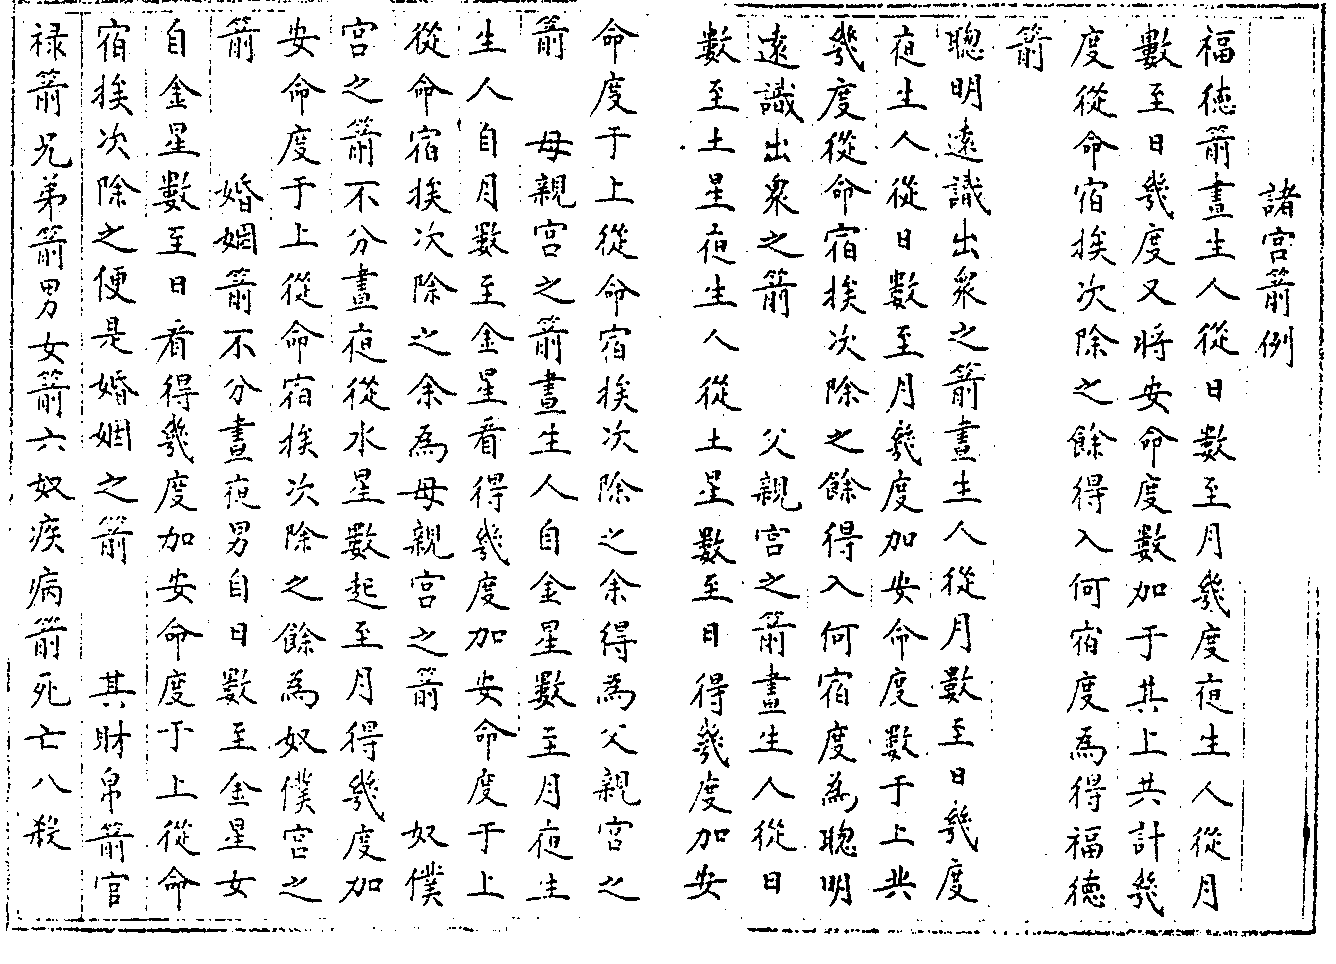 諸宮箭例
福徳箭晝生人從日數至月㡬度夜生人從月
數至日㡬度又將安命度數加于其上共計㡬
度從命宿挨次除之餘得入何宿度為得福德
箭
聰明遠識出衆之箭晝生人從月數至日㡬度
夜生人從日數至月㡬度加安命度數于上共
㡬度從命宿挨次除之餘得入何宿度為聰明
遠識出衆之箭　父親宮之箭晝生人從日
數至土星夜生人從土星數至日得㡬度加安
命度于上從命宿挨次除之余得為父親宮之
箭　母親宮之箭晝生人自金星數至月夜生
生人自月數至金星看得㡬度加安命度于上
從命宿挨次除之余為母親宮之箭　奴僕
宮之箭不分晝夜從水星數起至月得㡬度加
安命度于上從命宿挨次除之餘為奴僕宮之
箭　婚姻箭不分晝夜男自日數至金星女
自金星數至日看得㡬度加安命度于上從命
宿挨次除之便是婚姻之箭　其財帛箭官
禄箭兄弟箭男女箭六奴疾病箭死亡八殺